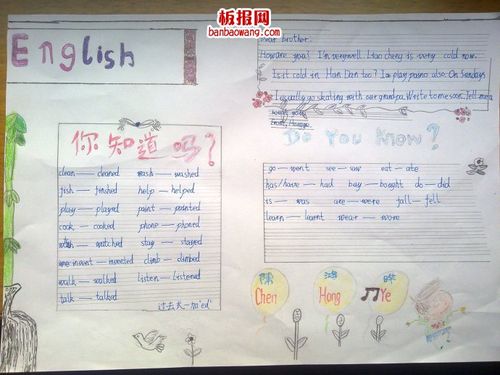 板报网
banbaowang.com
English
Dear brother:
How are you? I'm very well. Liao cheng is very cold now.
Is it cold in Han Dan too? I play piano also. On Sundays
I usually go skating with our grandpa. Write to me soon. Tell me
你知道吗?
clean — cleaned wash — washed
fish — fished help — helped
play — played paint — painted
cook — cooked phone — phoned
watch — watched stay — stayed
invent — invented climb — climbed
walk — walked listen — listened
talk — talked
过去式一加"ed"
DO YOU KNOW?
go — went see — saw eat — ate
has/have — had buy — bought do — did
is — was are — were fall — fell
learn — learnt wear — wore
陈 鸿 晔
Chen Hong Ye